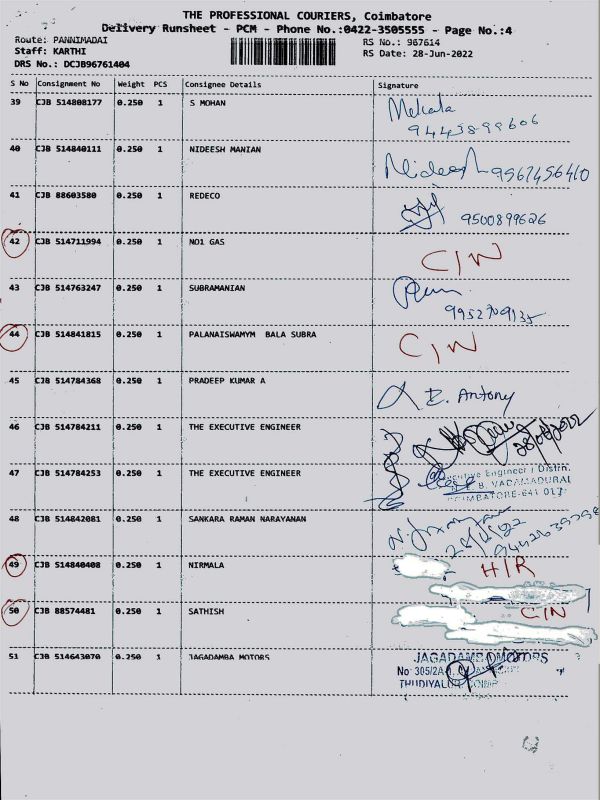 THE PROFESSIONAL COURIERS, Coimbatore
Delivery Runsheet - PCM - Phone No.:0422-3505555 - Page No.:4
Route: PANNIMADAI RS No.: 967614
Staff: KARTHI RS Date: 28-Jun-2022
DRS No.: DCJB96761404
S No Consignment No Weight PCS Consignee Details Signature
39 CJB 514808177 0.250 1 S MOHAN Mekala
9443899606
40 CJB 514840111 0.250 1 NIDEESH MANIAN Nideesh 9567456410
41 CJB 88603580 0.250 1 REDECO
9500899626
42 CJB 514711994 0.250 1 NO1 GAS C/N
43 CJB 514763247 0.250 1 SUBRAMANIAN
9952709135
44 CJB 514841815 0.250 1 PALANAISWAMYM BALA SUBRA C/N
45 CJB 514784368 0.250 1 PRADEEP KUMAR A E. Antony
46 CJB 514784211 0.250 1 THE EXECUTIVE ENGINEER 28/06/2022
47 CJB 514784253 0.250 1 THE EXECUTIVE ENGINEER Executive Engineer / Distn.
E. B. VADAMADURAI
COIMBATORE-641 017
48 CJB 514842081 0.250 1 SANKARA RAMAN NARAYANAN
49 CJB 514840408 0.250 1 NIRMALA H/R
50 CJB 88574481 0.250 1 SATHISH C/N
51 CJB 514643070 0.250 1 JAGADAMBA MOTORS JAGADAMBA MOTORS
No 305/2A
THUDIYALUR